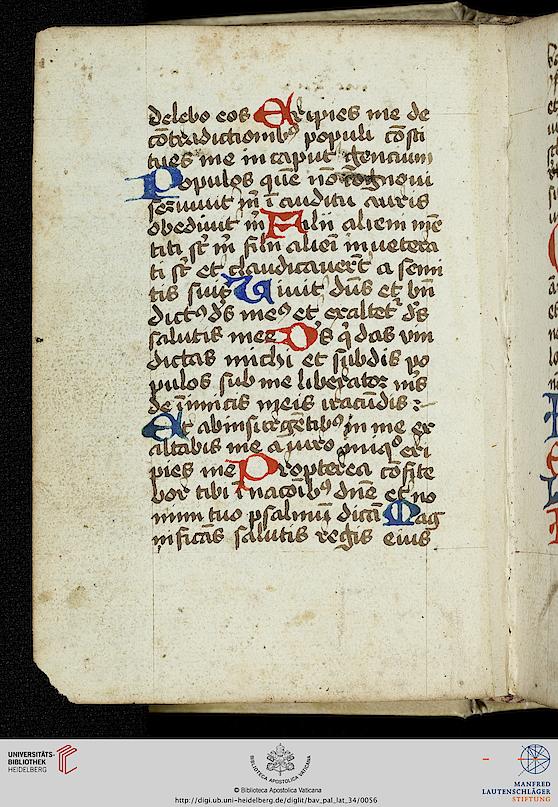 delebo eos Eripies me de
cōtradictionibꝰ populi cōsti
tues me in caput gencium
Populos quē nō cognoui
seruiuit m̄ ī auditu auris
obediuit m̄ Filii alieni mē
titi st̄ m̄ filii alieni inuetera
ti st̄ et claudicauerūt a semi
tis suis Uiuit dūs et bn̄
dictꝰ dˢ meꝰ et exaltet̄ dˢ
salutis mee Dˢ q̇ das vin
dictas michi et subdis po
pulos sub me liberator mˢ
de īimicis meis iracūdis :
Et ab insurgētibꝰ in me ex
altabis me a viro iniqͦ eri
pies me Propterea cōfite
bor tibi ī nacōibꝰ dn̄e et no
mini tuo psalmū dicā Mag
nificās salutis regis eius
UNIVERSITÄTS-
BIBLIOTHEK
HEIDELBERG
BIBLIOTHECA APOSTOLICA VATICANA
© Biblioteca Apostolica Vaticana
http://digi.ub.uni-heidelberg.de/diglit/bav_pal_lat_34/0056
MANFRED
LAUTENSCHLÄGER
STIFTUNG